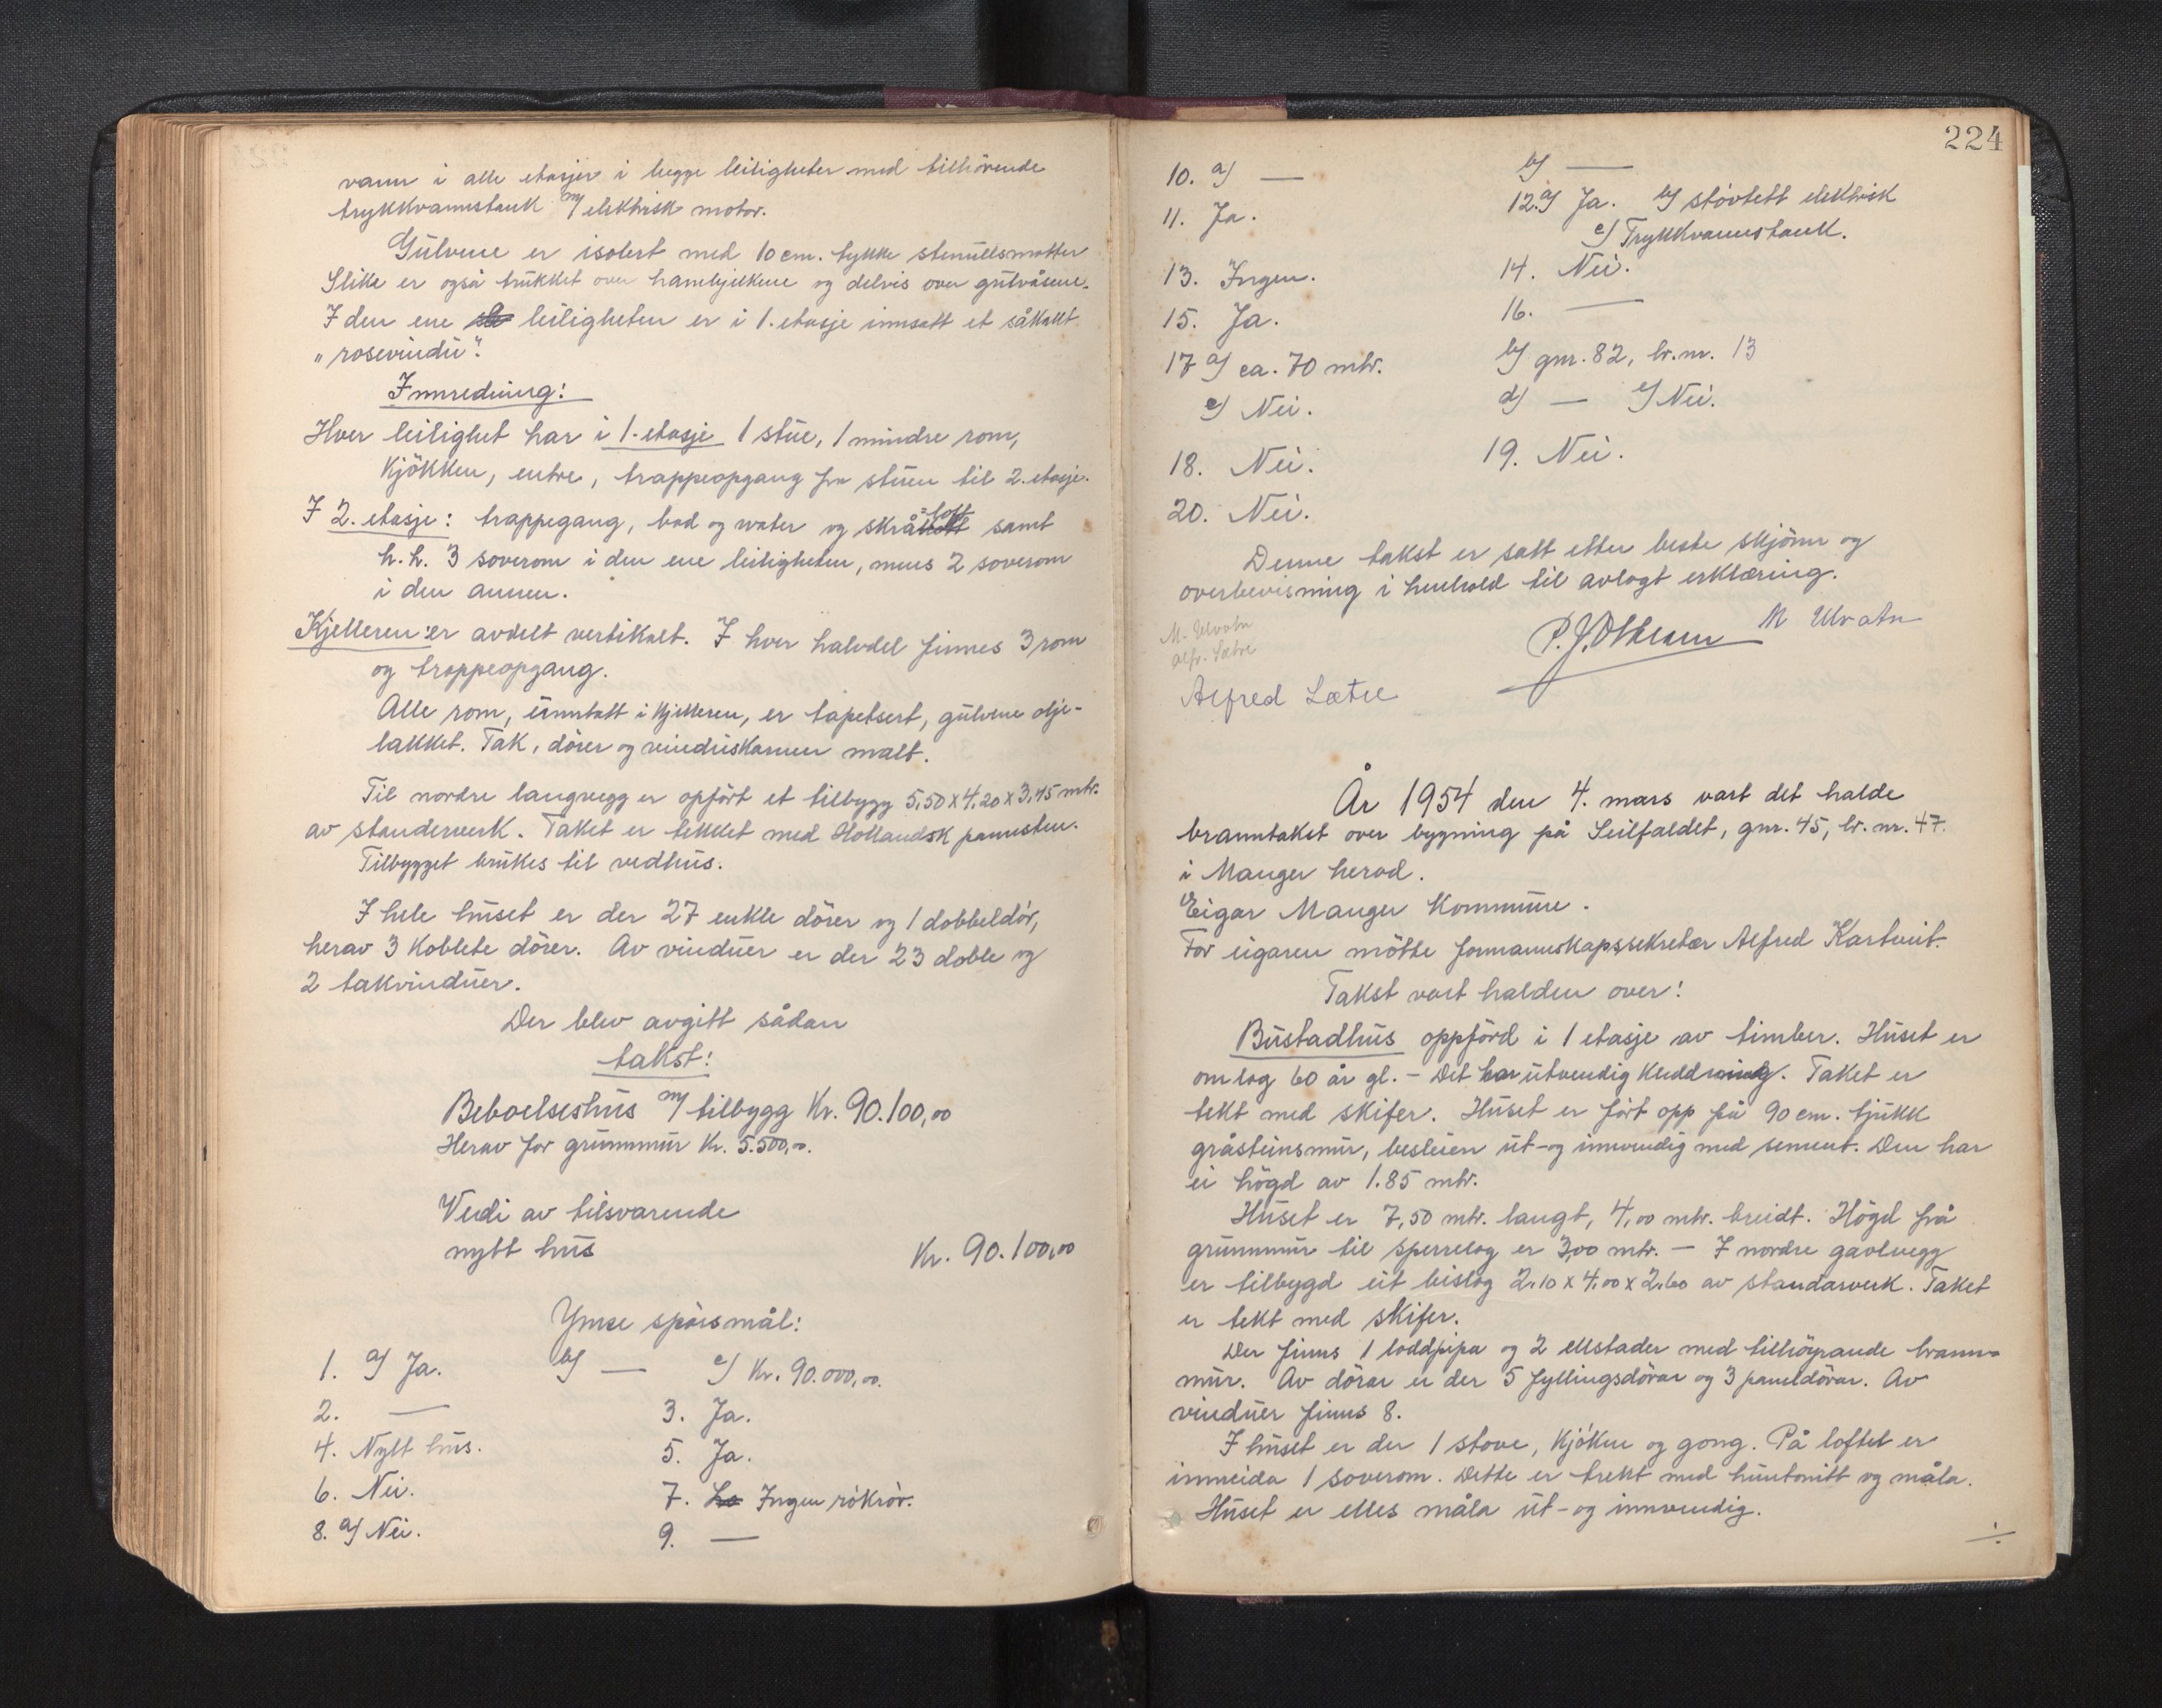 vann i alle etasjer i begge leiligheter med tilhörende
trykkvannstank m/ elektrisk motor.
Gulvene er isolert med 10 cm. tykke stenullsmatter
Slike er også trukket over hanebjelkene og delvis over gulvåsene.
I den ene leiligheten er i 1. etasje innsatt et såkalt
„rosevindu".
Innredning:
Hver leilighet har i 1. etasje 1 stue, 1 mindre rom,
kjökken, entre, trappeopgang fra stuen til 2. etasje.
I 2. etasje: trappegang, bad og water og skrå=loft samt
h.h. 3 soverom i den ene leiligheten, mens 2 soverom
i den annen.
Kjelleren: er avdelt vertikalt. I hver halvdel finnes 3 rom
og trappeopgang.
Alle rom, unntatt i kjelleren, er tapetsert, gulvene olje-
lakket. Tak, dörer og vinduskarmer malt.
Til nordre langvegg er opfört et tilbygg 5,50 x 4,20 x 3,45 mtr.
av standerverk. Taket er tekket med Hollandsk pannsten.
Tilbygget brukes til vedhus.
I hele huset er der 27 enkle dörer og 1 dobbeldör,
herav 3 koblete dörer. Av vinduer er der 23 doble og
2 takvinduer.
Der blev avgitt sådan
takst:
Beboelseshus m/ tilbygg Kr. 90.100,00
Herav for grunnmur Kr. 5.500,00.
Verdi av tilsvarende
nytt hus Kr. 90.100,00
Ymse spörsmål:
1. a/ Ja. b/ — c/ Kr. 90.000,00.
2. — 3. Ja.
4. Nytt hus. 5. Ja.
6. Nei. 7. Ingen rökrör.
8. a/ Nei. 9. —
224
10. a/ — b/ —
11. Ja. 12. a/ Ja. b/ stövtett elektrisk
c/ Trykkvannstank.
13. Ingen. 14. Nei.
15. Ja. 16. —
17 a/ ca. 70 mtr. b/ gnr. 82, br.nr. 13
c/ Nei. d/ — e/ Nei.
18. Nei. 19. Nei.
20. Nei.
Denne takst er satt etter beste skjönn og
overbevisning i henhold til avlagt erklæring.
M. Ulvatn
Alfr. Sætre
M Ulvatn
Alfred Sætre
År 1954 den 4. mars vart det halde
branntakst over bygning på Seilfaldet, gnr. 45, br. nr. 47.
i Manger herad.
Eigar Manger Kommune.
For eigaren mötte formannskapssekretær Alfred Kartveit.
Takst vart halden over:
Bustadhus oppförd i 1 etasje av timber. Huset er
om lag 60 år gl. – Det har utvendig kleddning. Taket er
tekt med skifer. Huset er fört opp på 90 cm. tjukk
gråsteinsmur, besleien ut- og innvendig med sement. Den har
ei högd av 1.85 mtr.
Huset er 7,50 mtr. langt, 4,00 mtr. breidt. Högd frå
grunnmur til sperrelag er 3,00 mtr. — I nordre gavlvegg
er tilbygd eit bislag 2,10 x 4,00 x 2,60 av standarverk. Taket
er tekt med skifer.
Der finns 1 loddpipa og 2 ellstader med tilhöyrande brann-
mur. Av dörar er der 5 fyllingsdörar og 3 paneldörar. Av
vinduer finns 8.
I huset er der 1 stove, kjöken og gong. På loftet er
innreida 1 soverom. Dette er trekt med huntonitt og måla.
Huset er elles måla ut- og innvendig.